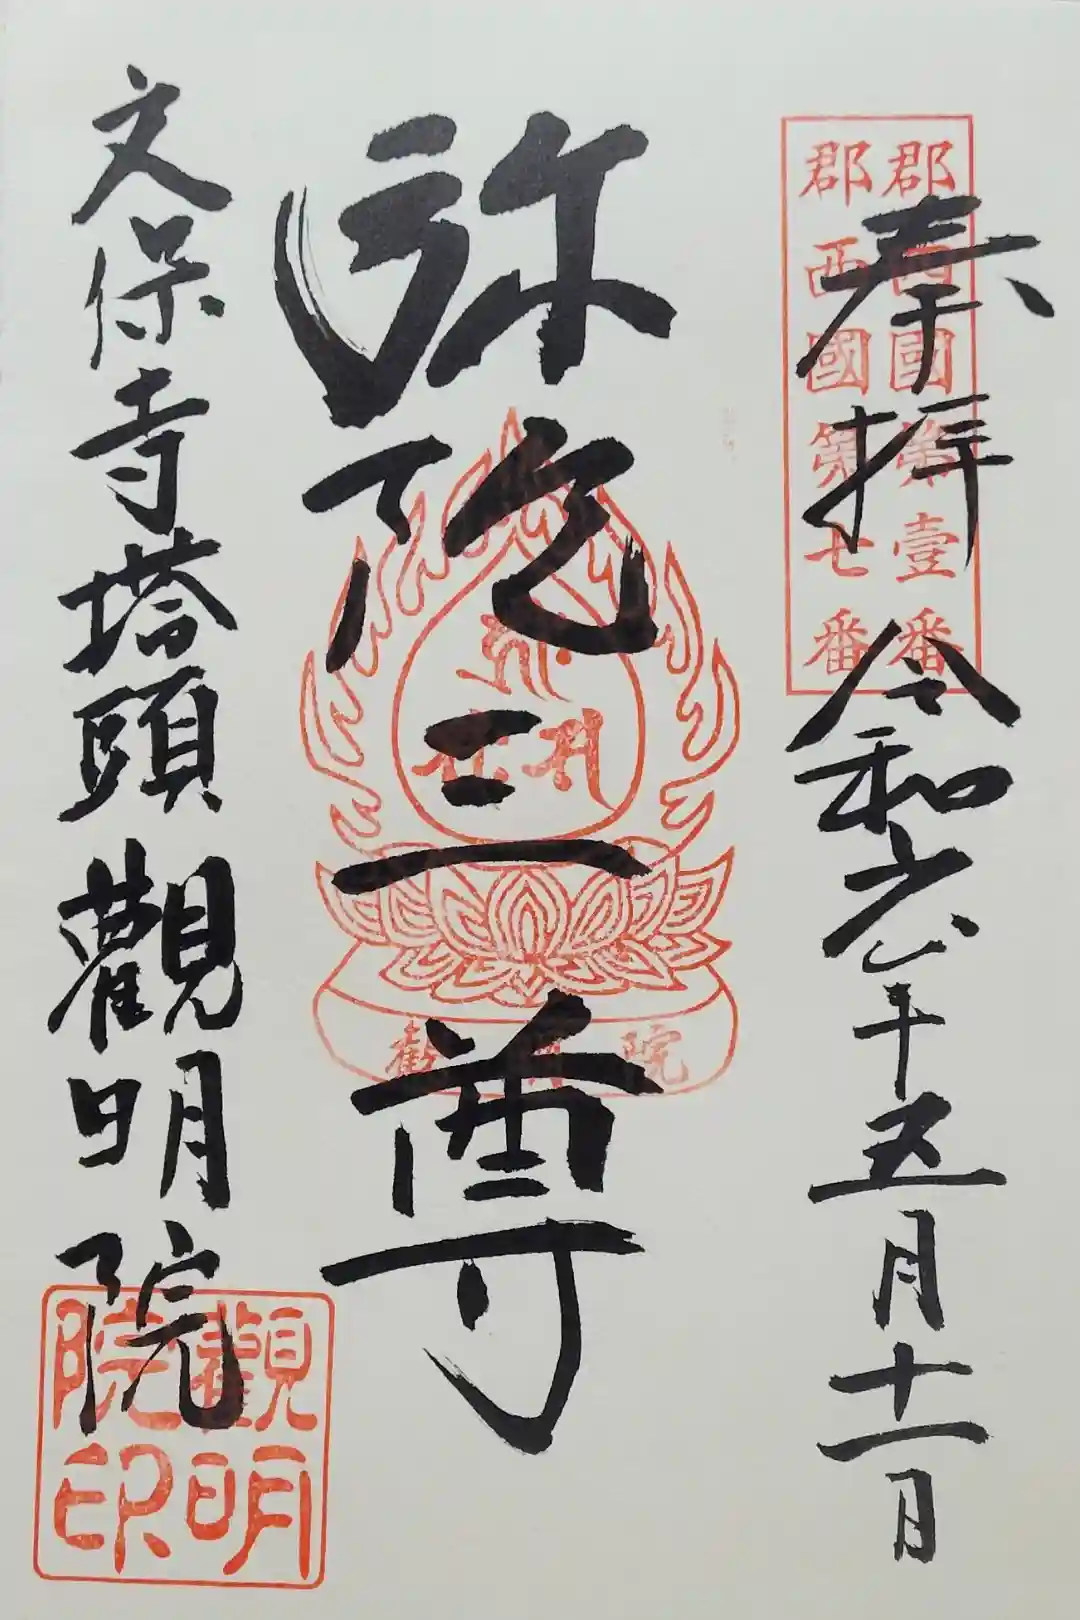 奉拝
令和六年五月十一日
郡西國第壹番
郡西國第七番
弥陀三尊
觀明院
文保寺塔頭觀明院
觀明院印